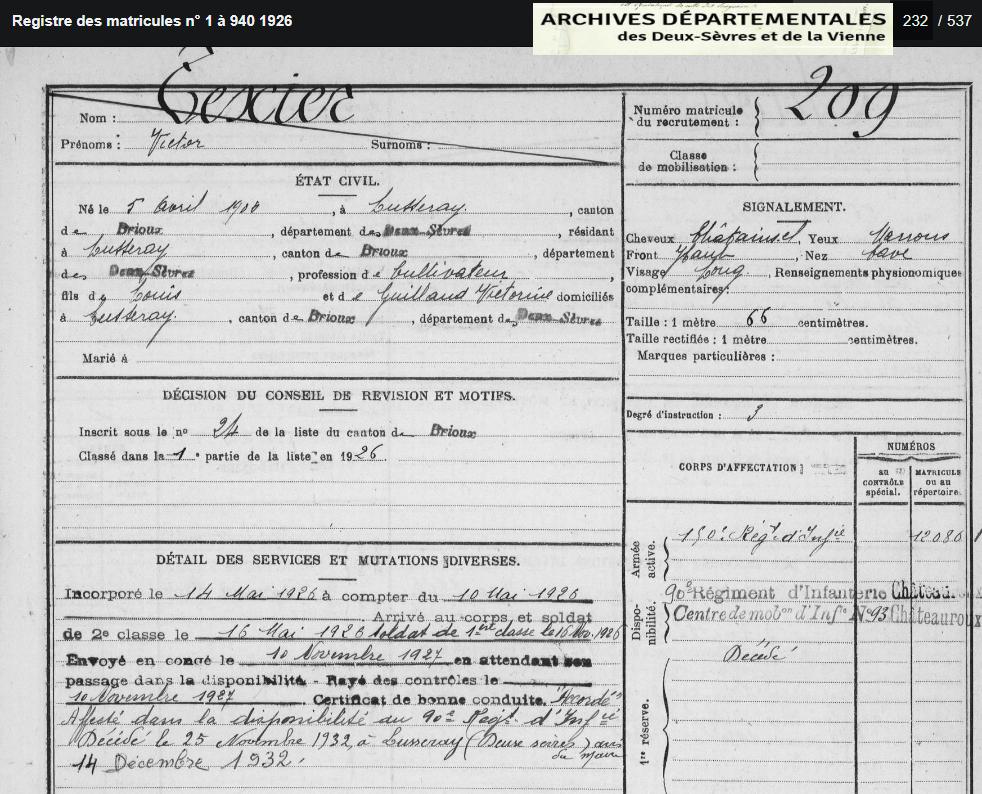 Registre des matricules n° 1 à 940 1926
ARCHIVES DÉPARTEMENTALES
des Deux-Sèvres et de la Vienne
232 / 537
Nom : Texier
Prénoms : Victor Surnoms :
Numéro matricule du recrutement : 209
Classe de mobilisation :
ÉTAT CIVIL.
Né le 5 Avril 1906, à Lusseray, canton
de Brioux, département des Deux-Sèvres, résidant
à Lusseray, canton de Brioux, département
des Deux-Sèvres, profession de Cultivateur,
fils de Louis et de Guillaud Victorine domiciliés
à Lusseray, canton de Brioux, département des Deux-Sèvres
Marié à
SIGNALEMENT.
Cheveux Yeux Marrons
Front Haut, Nez Cave
Visage Long, Renseignements physionomiques
complémentaires :
Taille : 1 mètre 66 centimètres.
Taille rectifiée : 1 mètre centimètres.
Marques particulières :
DÉCISION DU CONSEIL DE REVISION ET MOTIFS.
Inscrit sous le n° 24 de la liste du canton de Brioux
Classé dans la 1e partie de la liste en 1926.
Degré d'instruction : 3
CORPS D'AFFECTATION
NUMÉROS
AU CONTRÔLE spécial.
MATRICULE OU AU répertoire.
DÉTAIL DES SERVICES ET MUTATIONS DIVERSES.
Incorporé le 14 Mai 1926 à compter du 10 Mai 1926
Arrivé au corps, et soldat
de 2e classe le 16 Mai 1926 Soldat de 1ère classe le 16 Nov. 1926
Envoyé en congé le 10 Novembre 1927 en attendant son
passage dans la disponibilité - Rayé des contrôles le
10 Novembre 1927. Certificat de bonne conduite "Accordé"
Affecté dans la disponibilité au 90e Régt. d'Infie
Décédé le 25 Novembre 1932, à Lusseray (Deux sèvres) avis du Maire
14 Décembre 1932.
Armée active.
Régt d'Infie 12086
Disponibilité.
90e Régiment d'Infanterie Châteauroux
Centre de mobon d'Infie N°93 Châteauroux
1re réserve.
Décédé